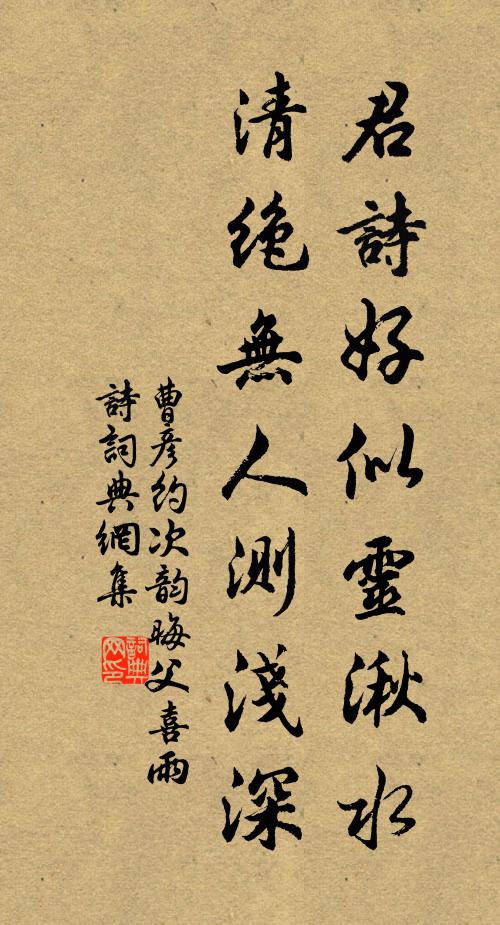 君詩好似靈湫水
清絕無人測淺深
曹彥約次韵晦父喜雨
詩詞典網集
詞典网印